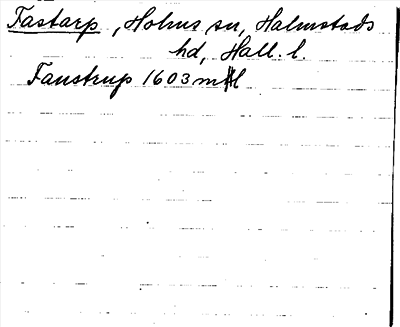 Fastarp, Holms sn, Halmstads
hd, Hall. l.
Faustrup 1603 mtl